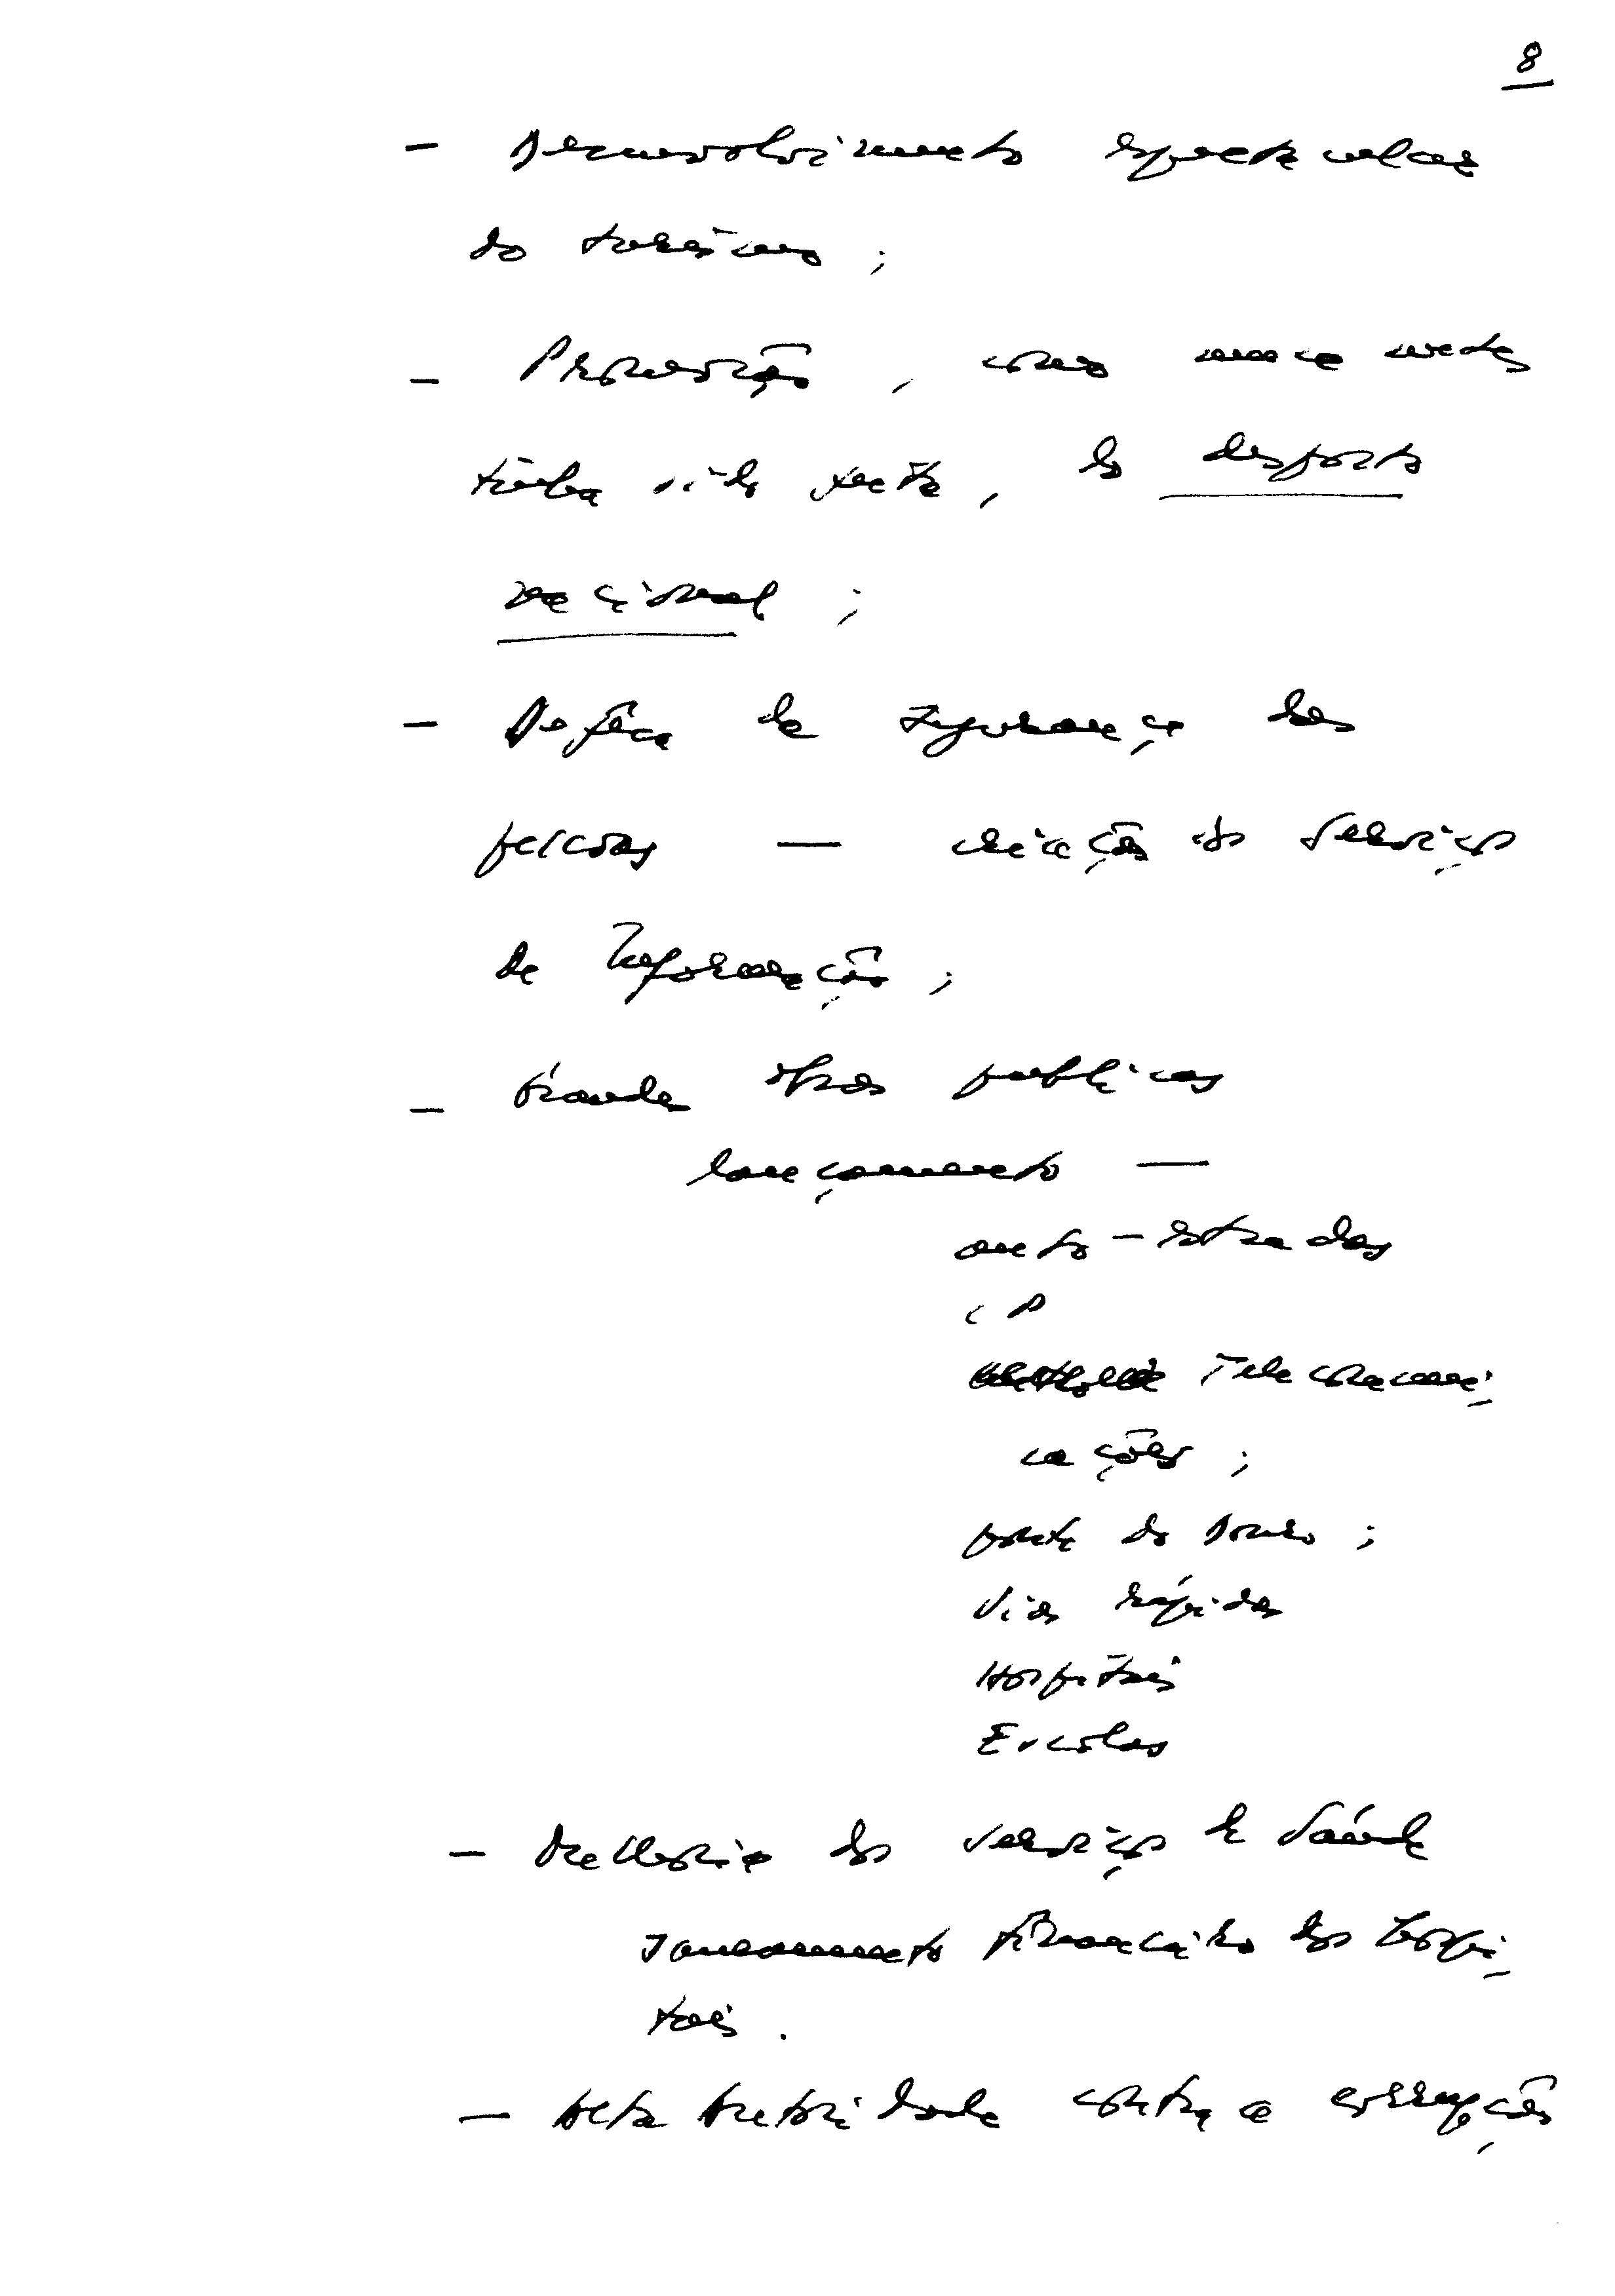 8
- Desenvolvimento espectacular
do turismo ;
- Promoção , como nunca antes
tinha sido feita , do desporto
nacional ;
- Defesa da segurança das
pessoas — criação do Serviço
de Informação ;
- Grandes obras publicas
lançamento —
auto-estradas
CP
Telecomuni-
cações ;
ponte do Douro ;
Vias rápidas
Hospitais
Escolas
- Melhoria do serviço de Saúde
Saneamento financeiro dos hospi-
tais .
- Alta Autoridade contra a corrupção